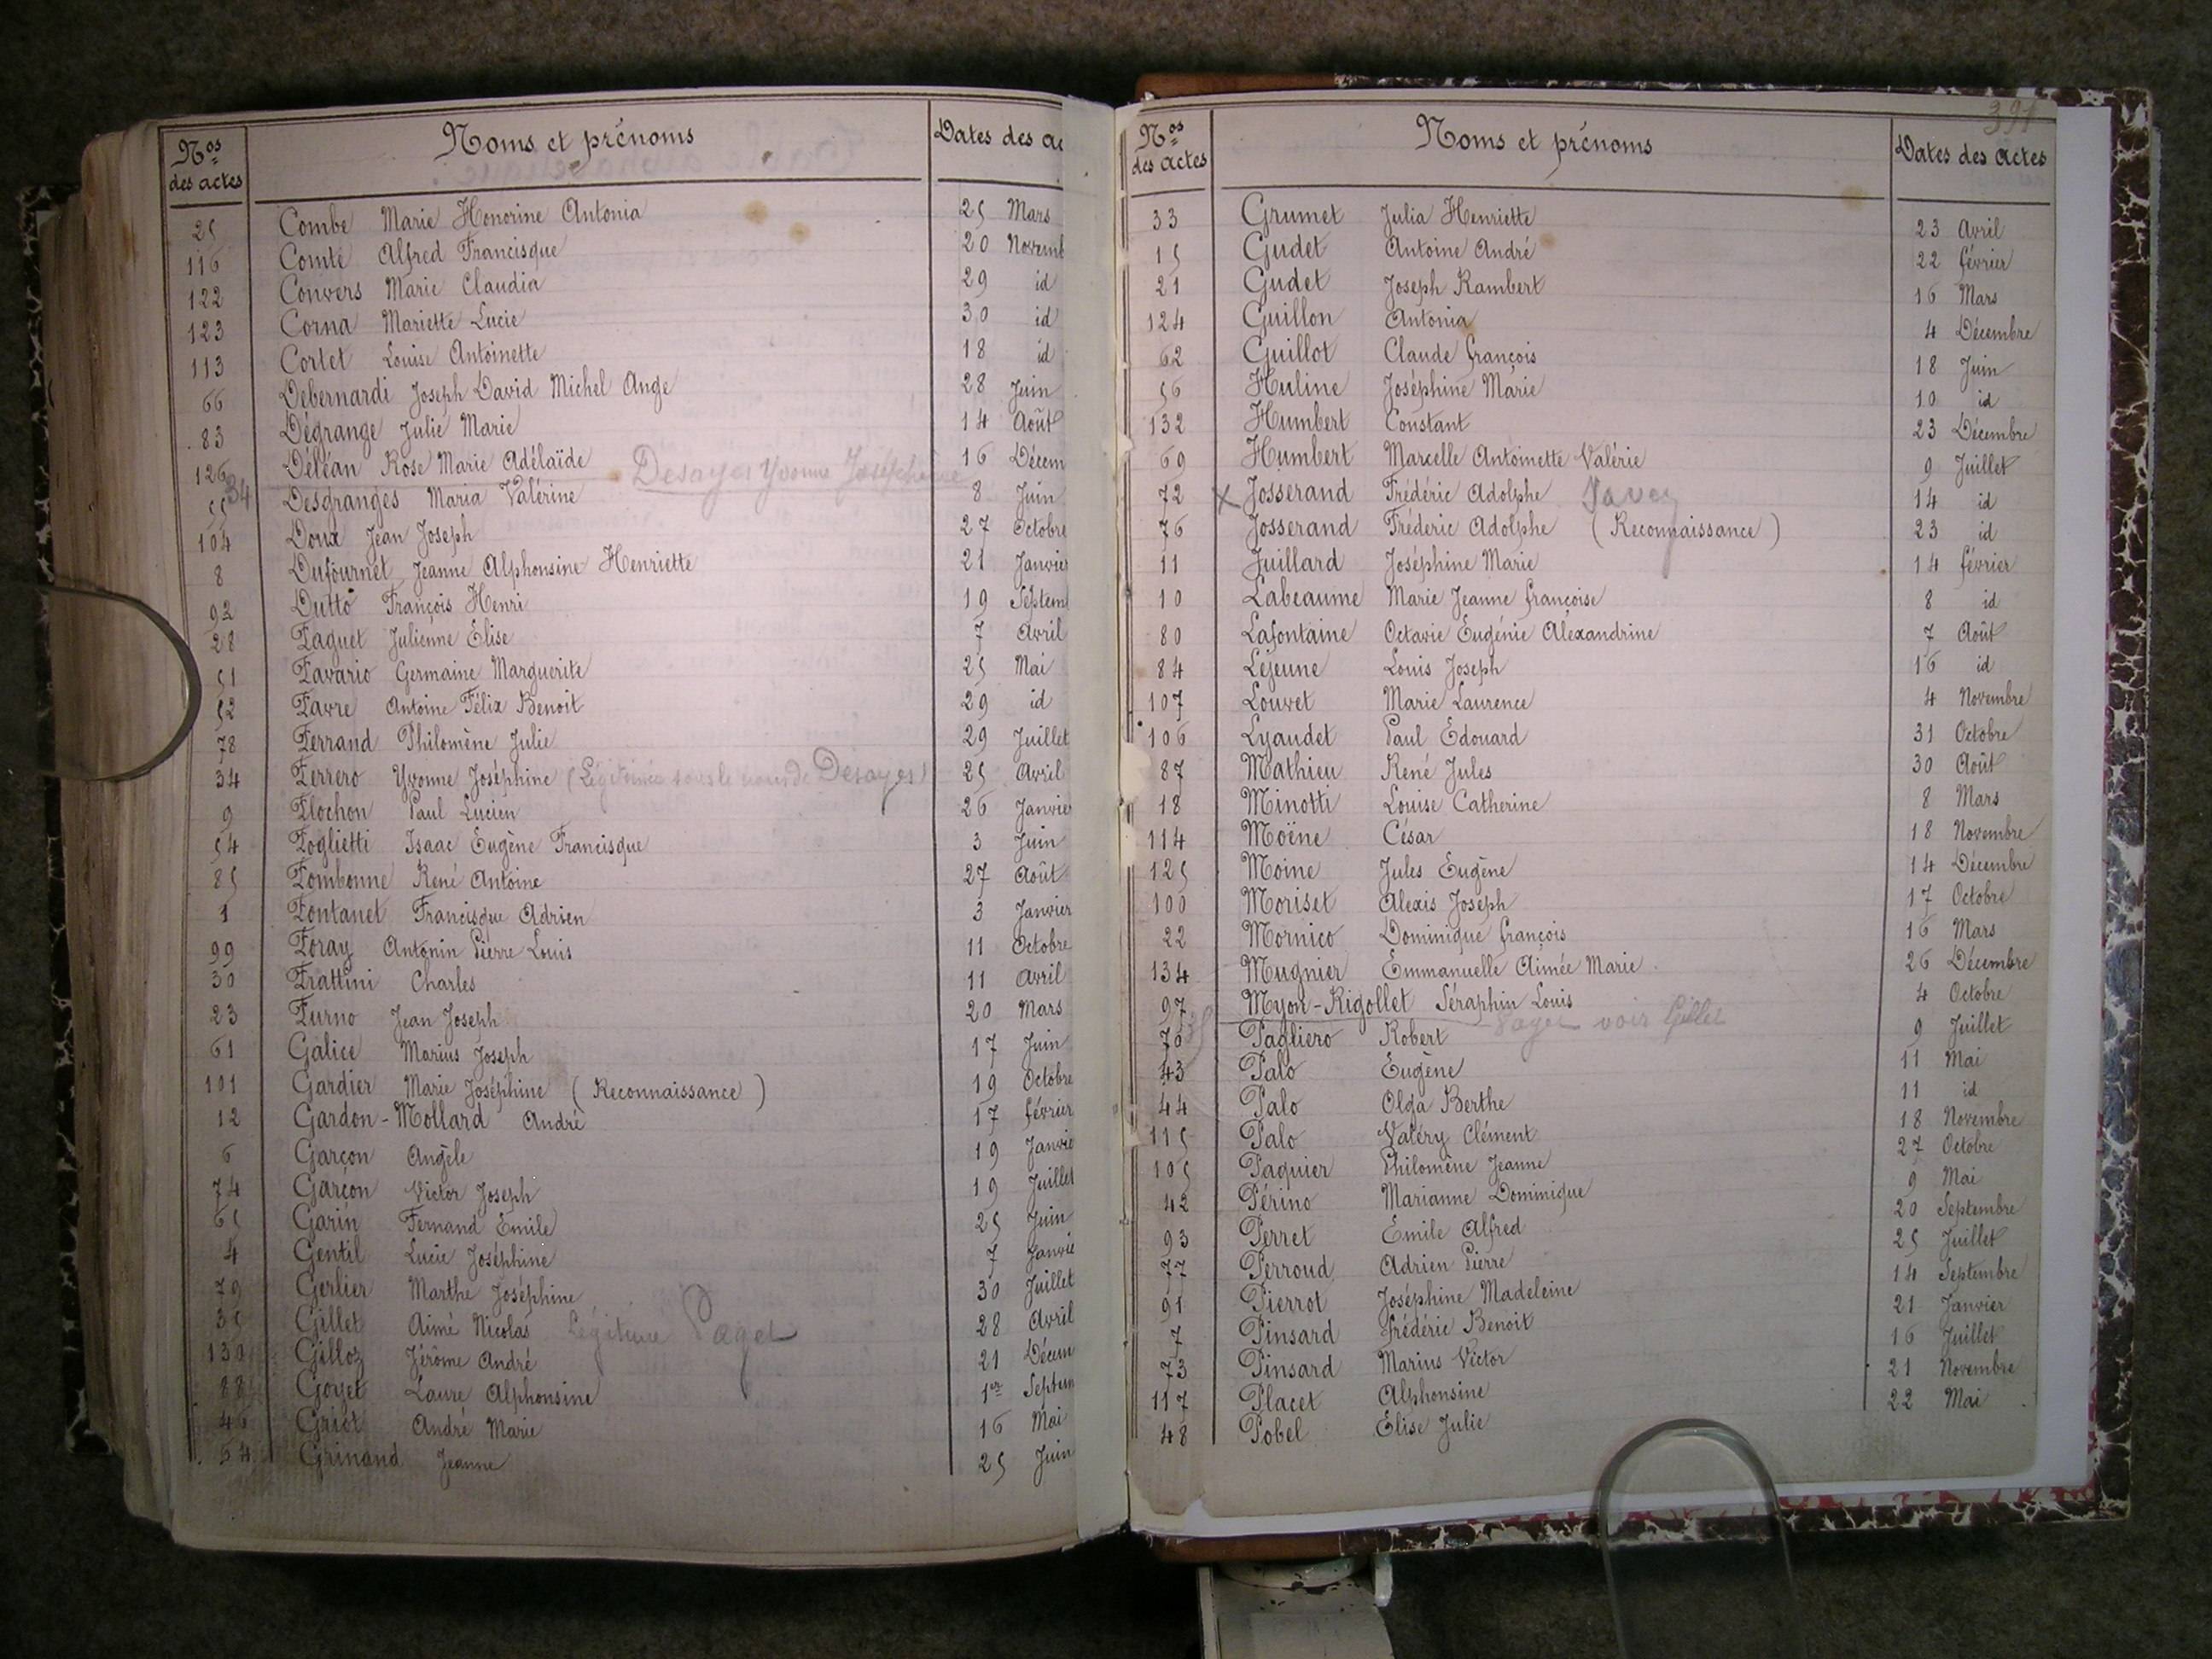 Nos des actes Noms et prénoms Dates des ac
25 Combe Marie Honorine Antonia 25 Mars
116 Comte Alfred Francisque 20 Novemb
122 Convers Marie Claudia 29 id
123 Corna Mariette Lucie 30 id
113 Cortet Louise Antoinette 18 id
66 Debernardi Joseph David Michel Ange 28 Juin
83 Dégrange Julie Marie 14 Août
126 Déléan Rose Marie Adélaïde 16 Décem
34 Desayes Yvonne Joséphine
55 Desgranges Maria Valérine 8 Juin
104 Doux Jean Joseph 27 Octobre
8 Dufournet Jeanne Alphonsine Henriette 21 Janvier
92 Dutto François Henri 19 Septem
28 Faguet Julienne Elise 7 Avril
51 Favario Germaine Marguerite 25 Mai
52 Favre Antoine Félix Benoit 29 id
78 Ferrand Philomène Julie 29 Juillet
34 Ferrero Yvonne Joséphine (Légitimée sous le nom de Desayes) 25 Avril
9 Flochon Paul Lucien 26 Janvier
54 Foglietti Isaac Eugène Francisque 3 Juin
85 Fombonne René Antoine 27 Août
1 Fontanet Francisque Adrien 3 Janvier
99 Foray Antonin Pierre Louis 11 Octobre
30 Frattini Charles 11 Avril
23 Furno Jean Joseph 20 Mars
61 Galice Marius Joseph 17 Juin
101 Gardier Marie Joséphine (Reconnaissance) 19 Octobre
12 Gardon-Mollard André 17 février
6 Garçon Angèle 19 Janvie
74 Garçon Victor Joseph 19 Juillet
65 Garin Fernand Emile 25 Juin
4 Gentil Lucie Joséphine 7 Janvie
79 Gerlier Marthe Joséphine 30 Juillet
35 Gillet Aimé Nicolas Légitimé Paget 28 Avril
130 Gilloz Jérôme André 21 Décem
88 Goyet Laure Alphonsine 1er Septem
46 Griot André Marie 16 Mai
64 Grinand Jeanne 25 Juin
391
Nos des actes Noms et prénoms Dates des actes
33 Grumet Julia Henriette 23 Avril
15 Gudet Antoine André 22 février
21 Gudet Joseph Rambert 16 Mars
124 Guillon Antonia 4 Décembre
62 Guillot Claude françois 18 Juin
56 Huline Joséphine Marie 10 id
132 Humbert Constant 23 Décembre
69 Humbert Marcelle Antoinette Valérie 9 Juillet
72 x Josserand Frédéric Adolphe 14 id
76 Josserand Fréderic Adolphe (Reconnaissance) 23 id
11 Juillard Joséphine Marie 14 février
10 Labeaume Marie Jeanne françoise 8 id
80 Lafontaine Octavie Eugénie Alexandrine 7 Août
84 Lejeune Louis Joseph 16 id
107 Louvet Marie Laurence 4 Novembre
106 Lyaudet Paul Edouard 31 Octobre
87 Mathieu René Jules 30 Août
18 Minotti Louise Catherine 8 Mars
114 Moëne César 18 Novembre
125 Moine Jules Eugène 14 Décembre
100 Moriset Alexis Joseph 17 Octobre
22 Mornico Dominique françois 16 Mars
134 Mugnier Emmanuelle Aimée Marie 26 Décembre
97 Myon-Rigollet Séraphin Louis 4 Octobre
35 Paget voir Gillet
70 Pagliero Robert 9 Juillet
43 Palo Eugène 11 Mai
44 Palo Olga Berthe 11 id
115 Palo Valéry Clément 18 Novembre
105 Paquier Philomène Jeanne 27 Octobre
42 Périno Marianne Dominique 9 Mai
93 Perret Emile Alfred 20 Septembre
77 Perroud Adrien Pierre 25 Juillet
91 Pierrot Joséphine Madeleine 14 Septembre
7 Pinsard frédéric Benoit 21 Janvier
73 Pinsard Marius Victor 16 Juillet
117 Placet Alphonsine 21 Novembre
48 Pobel Elise Julie 22 Mai